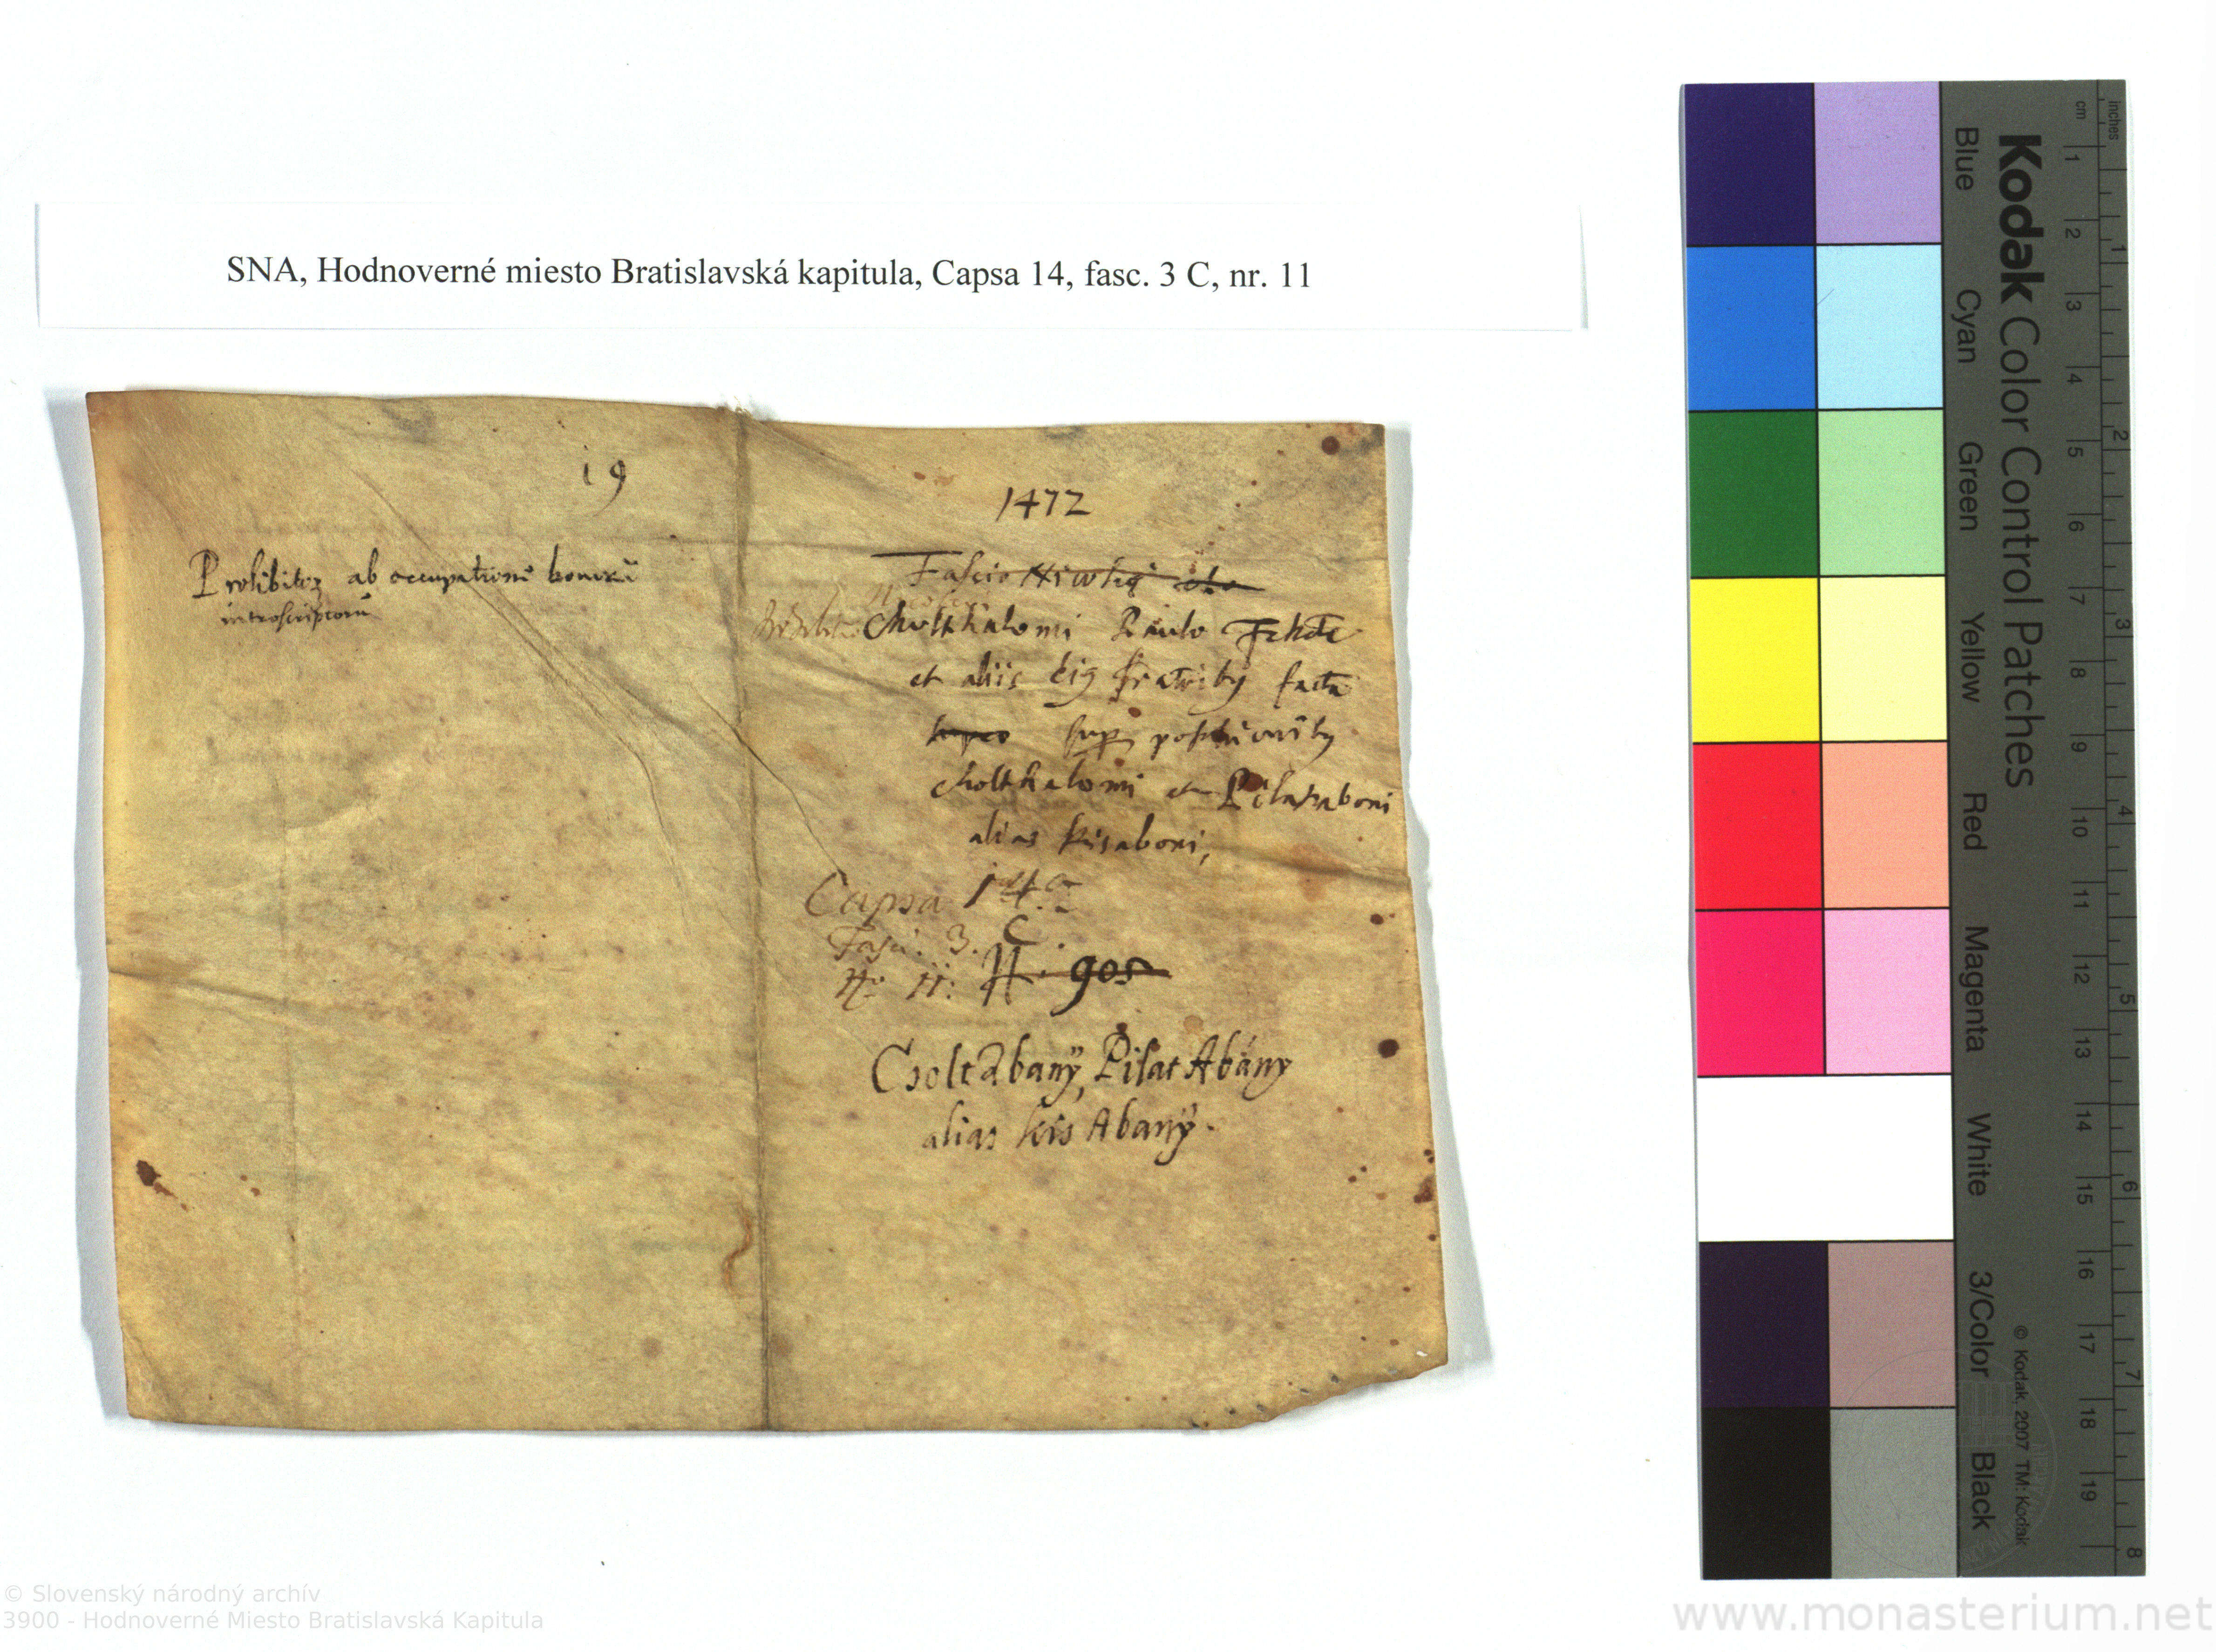 SNA, Hodnoverné miesto Bratislavská kapitula, Capsa 14, fasc. 3 C, nr. 11
i9
Prohibitoꝝ ab occupationē bonorū
introscriptorū
1472
Fassio
Choltkalomi Paulo Fekete
et aliis eiꝯ fratribꝫ facta
sup possessionibꝫ
choltkalomi et Pilataboni
alias kisaboni,
Capsa 14.a
Fasc. 3. C
No 11: N. 905
CsoltAbanÿ, Pilat Abány
alias kis Abanÿ.
Kodak Color Control Patches
Blue Cyan Green Yellow Red Magenta White 3/Color Black
© Kodak, 2007 TM: Kodak
inches 1 2 3 4 5 6 7 8
cm 1 2 3 4 5 6 7 8 9 10 11 12 13 14 15 16 17 18 19
© Slovenský národný archív
3900 - Hodnoverné Miesto Bratislavská Kapitula
www.monasterium.net